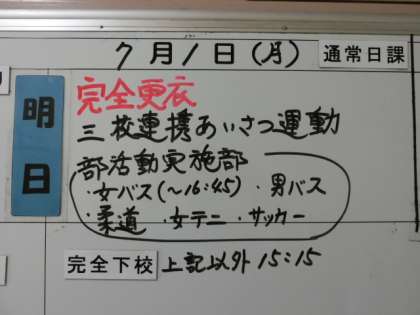 7月1日(月) 通常日課
明日
完全更衣
三校連携あいさつ運動
部活動実施部
・女バス(～16:45) ・男バス
・柔道 ・女テニ ・サッカー
完全下校 上記以外 15:15